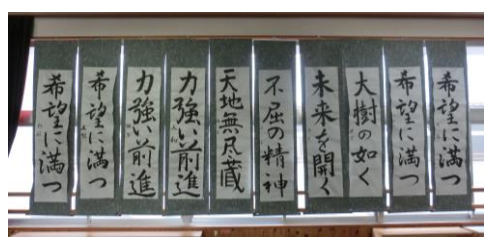 希望に満つ
希望に満つ
大樹の如く
未来を開く
不屈の精神
天地無尽蔵
力強い前進
力強い前進
希望に満つ
希望に満つ